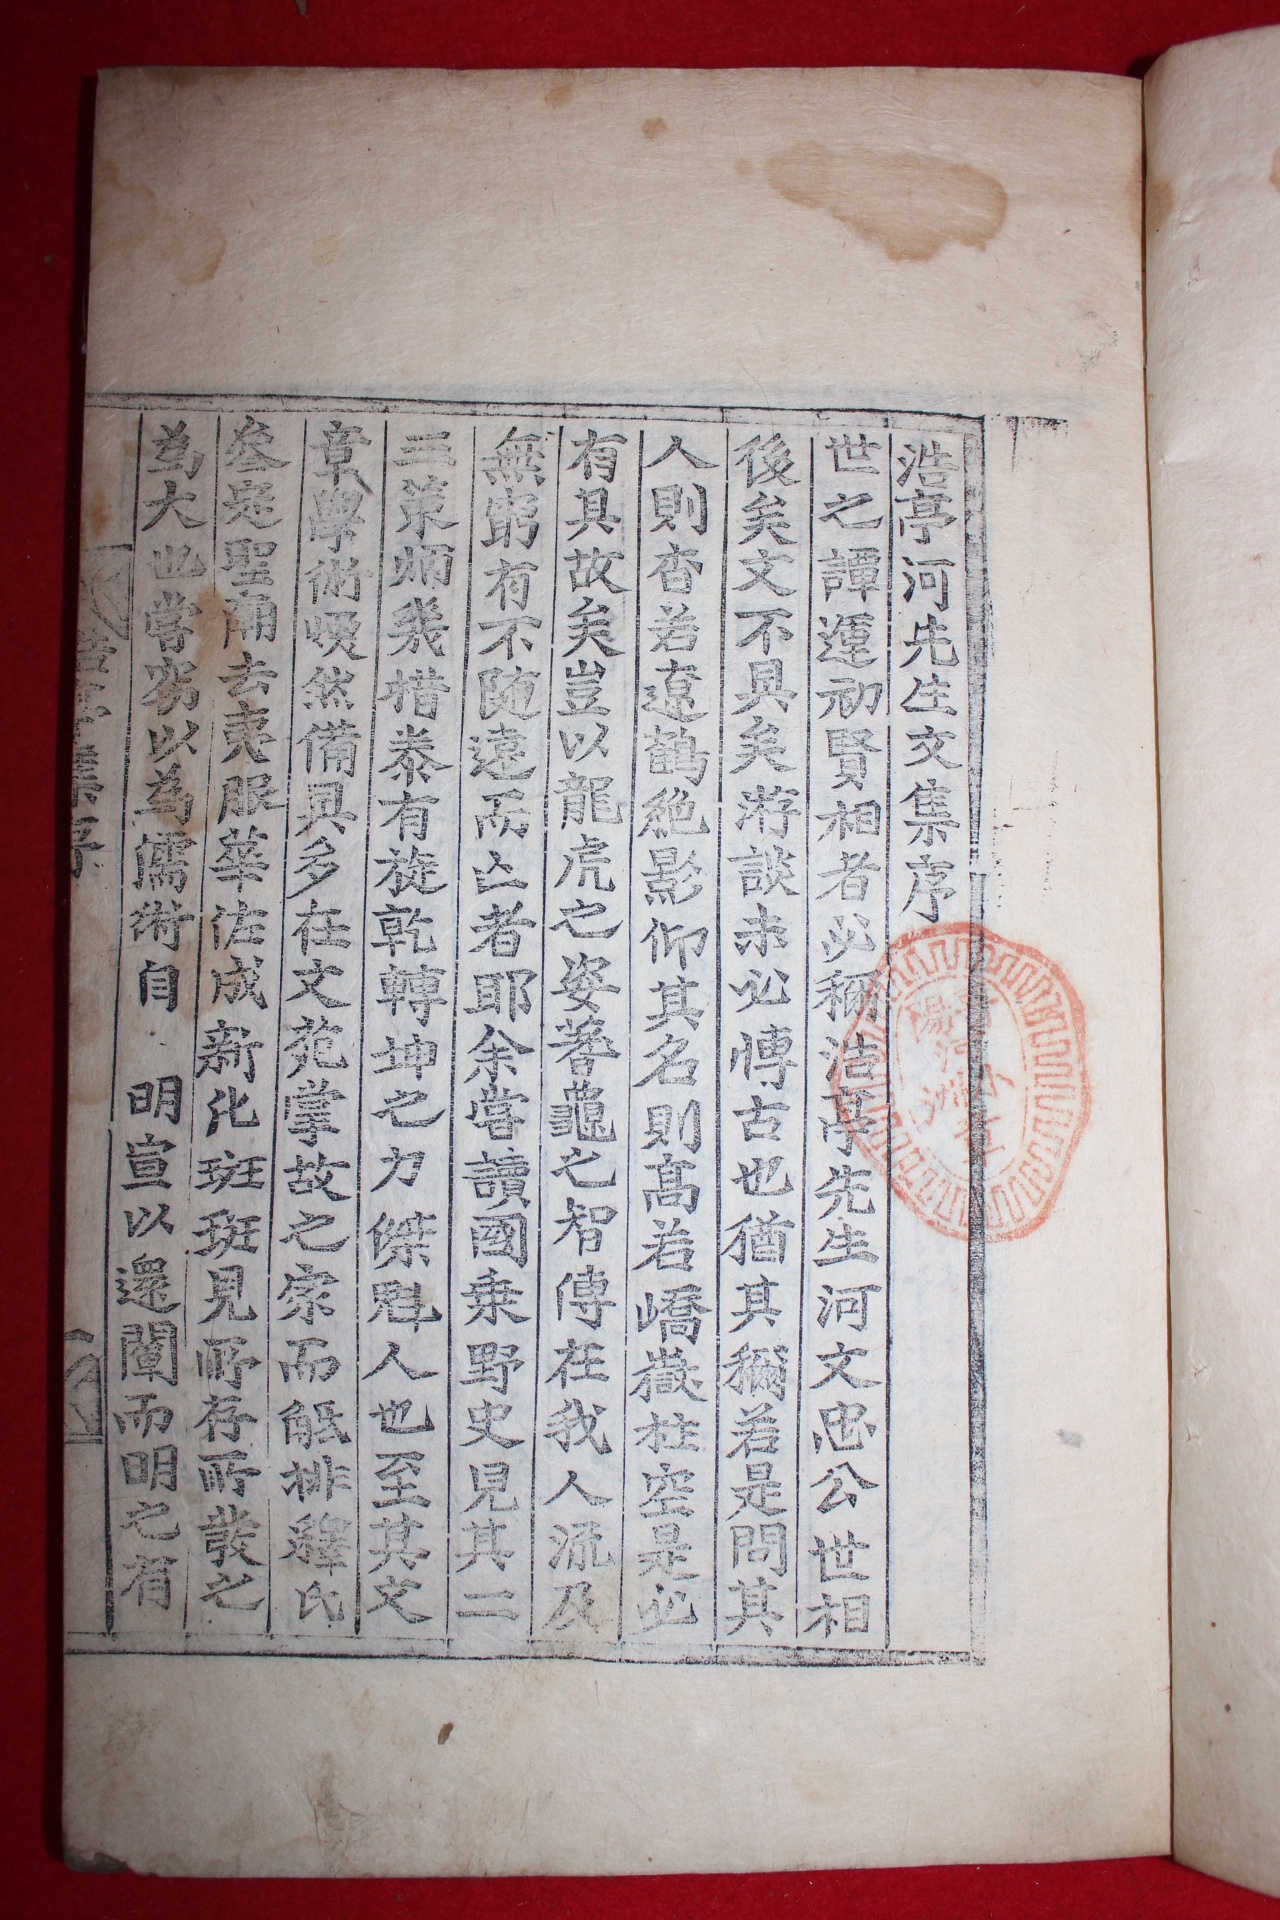 浩亭河先生文集序
世之譚運初賢相者必稱浩亭先生河文忠公世相
後矣文不具矣游談未必慱古也猶其稱若是問其
人則杳若遼鶴絶影仰其名則高若嶠嶽柱空是必
有具故矣豈以龍虎之姿蓍龜之智傳在我人流及
無窮有不随遠而亡者耶余嘗讀國乗野史見其二
三策炳幾措泰有旋乾轉坤之力傑魁人也至其文
章學術暎然備具多在文苑掌故之家而觝排釋氏
叅定聖廟去夷服華佐成新化斑斑見所存所發之
為大也嘗窃以為儒術自 明宣以還闡而明之有
集序